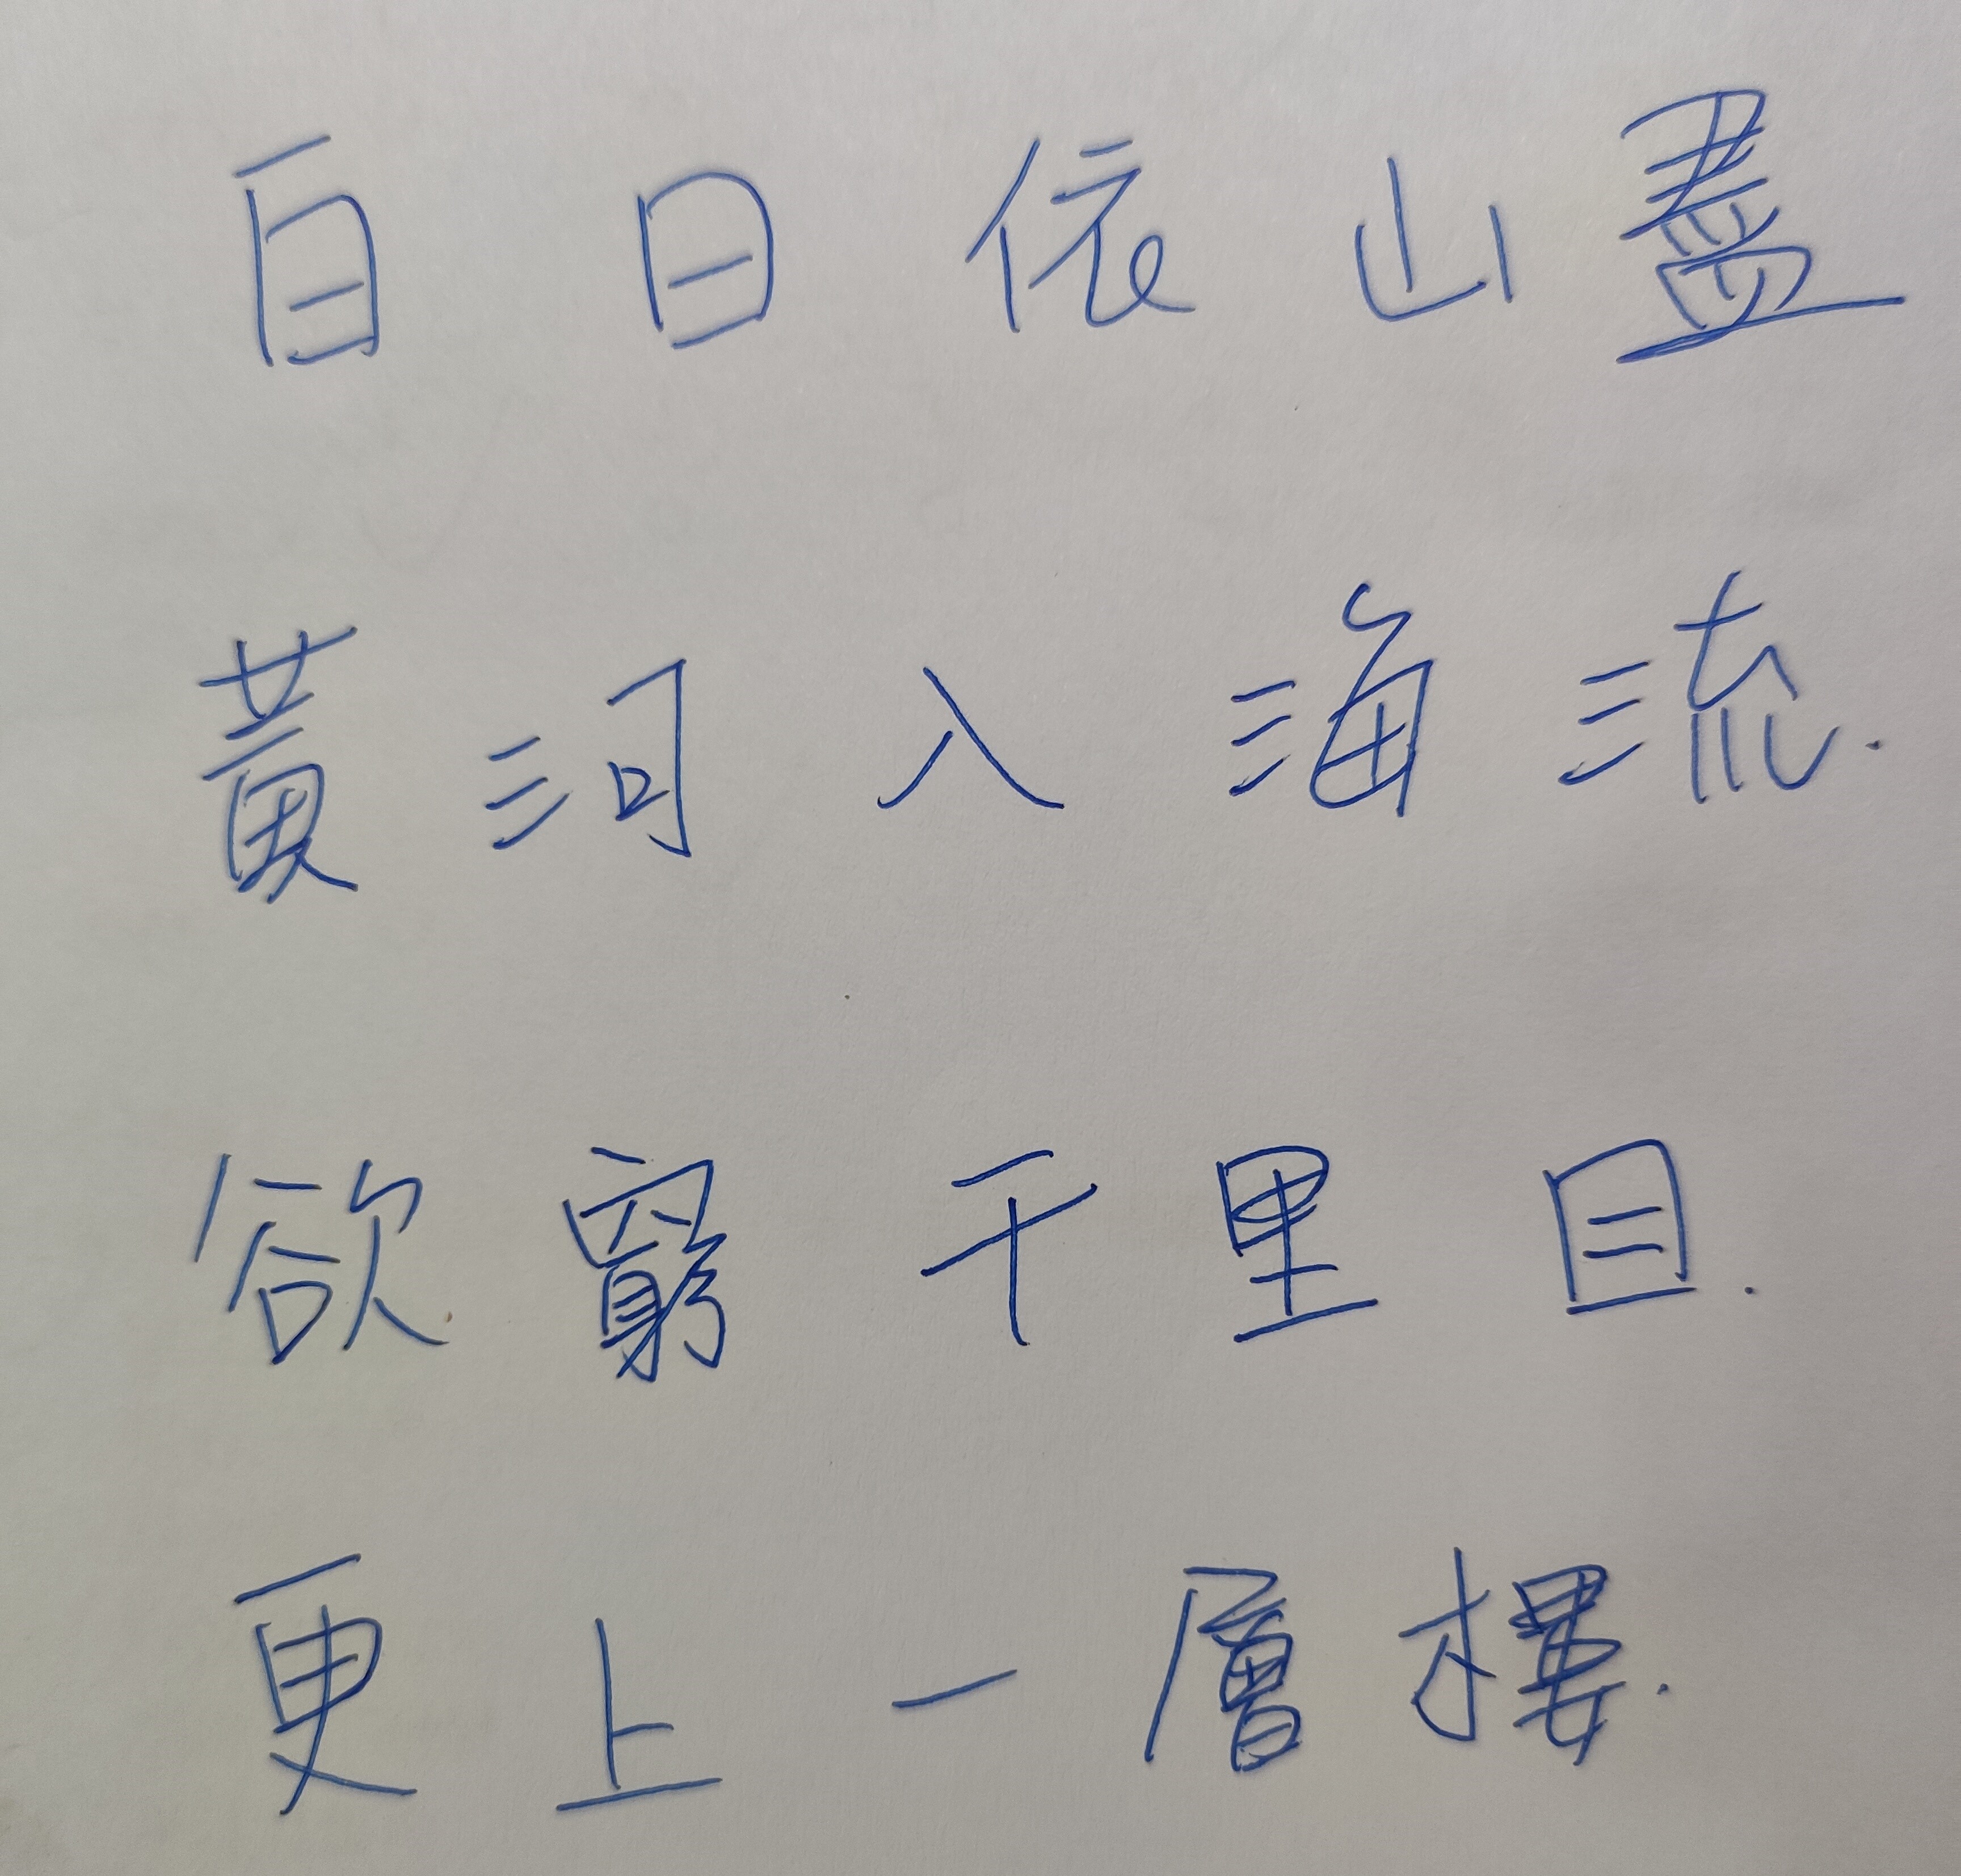 白日依山盡
黃河入海流.
欲窮千里目.
更上一層樓.